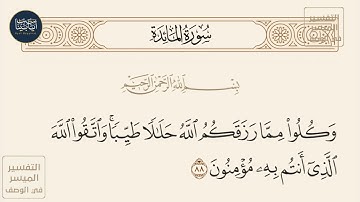 سُورَةُ المَائِدَة
بِسْمِ اللَّهِ الرَّحْمَٰنِ الرَّحِيمِ
وَكُلُوا۟ مِمَّا رَزَقَكُمُ ٱللَّهُ حَلَـٰلًۭا طَيِّبًۭا ۚ وَٱتَّقُوا۟ ٱللَّهَ
ٱلَّذِىٓ أَنتُم بِهِۦ مُؤْمِنُونَ ٨٨
التفسير
الميسر
في الوصف
التفسير
الميسر
في الوصف